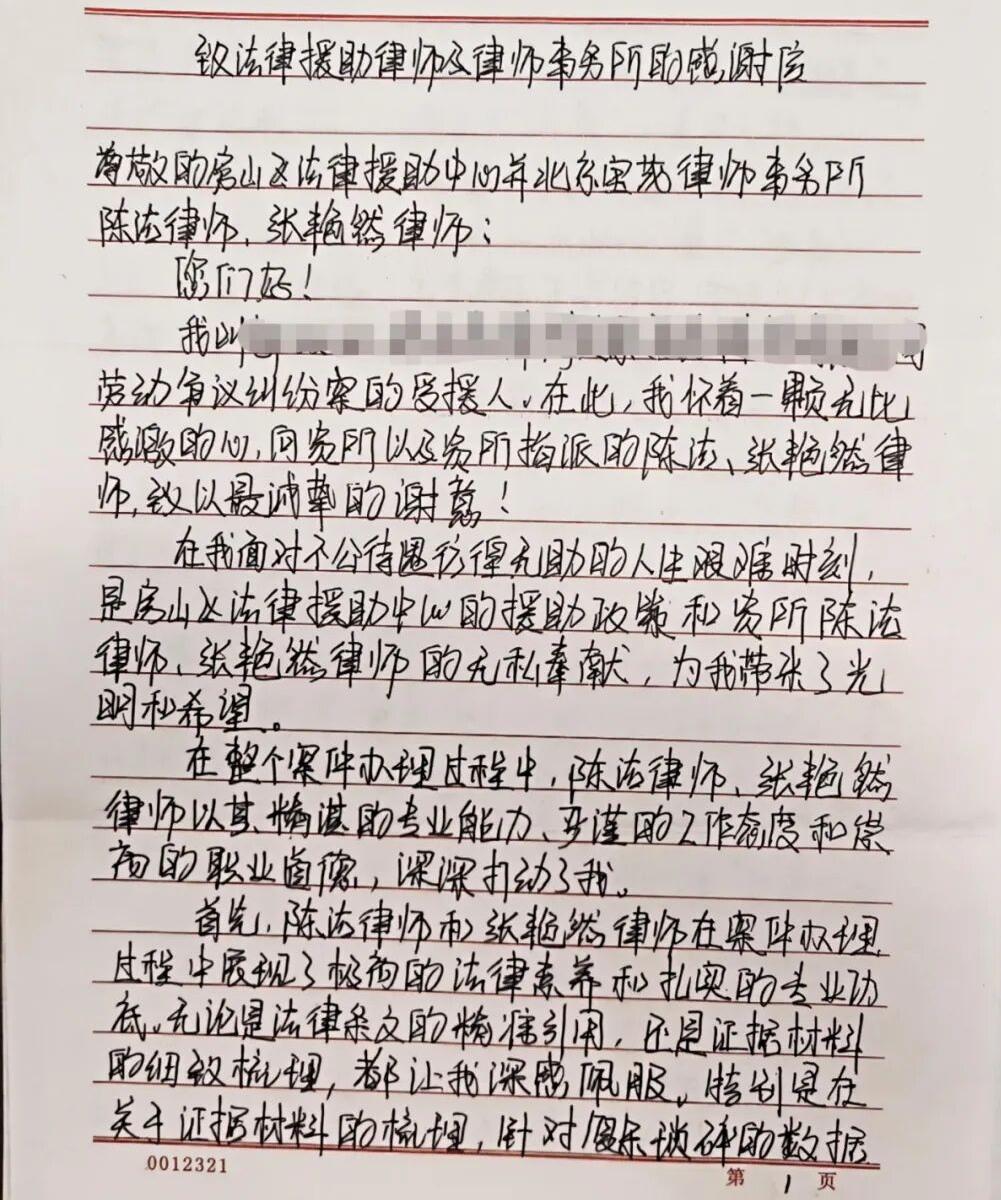 致法律援助律师及律师事务所的感谢信
尊敬的房山区法律援助中心并北京宝茂律师事务所
陈法律师、张艳然律师：
您们好！
我叫
劳动争议纠纷案的受援人。在此，我怀着一颗无比
感激的心，向贵所以及贵所指派的陈法、张艳然律
师，致以最诚挚的谢意！
在我面对不公待遇彷徨无助的人生艰难时刻，
是房山区法律援助中心的援助政策和贵所陈法
律师、张艳然律师的无私奉献，为我带来了光
明和希望。
在整个案件办理过程中，陈法律师、张艳然
律师以其精湛的专业能力、严谨的工作态度和崇
高的职业道德，深深打动了我。
首先，陈法律师和张艳然律师在案件办理
过程中展现了极高的法律素养和扎实的专业功
底。无论是法律条文的精准引用，还是证据材料
的细致梳理，都让我深感佩服。特别是在
关于证据材料的梳理，针对复杂琐碎的数据
0012321
第 1 页